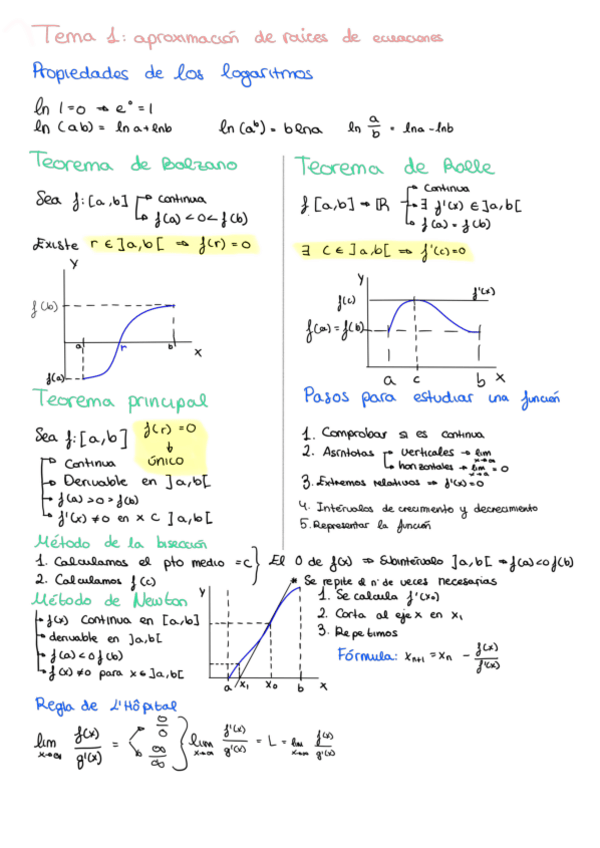 Tema 1: aproximación de raices de ecuaciones
Propiedades de los logaritmos
ln 1=0 → e° = 1
ln (ab) = lna+lnb    ln (aᵇ) = b lna    ln a/b = lna-lnb
Teorema de Bolzano
Sea f:[a,b] → continua
→ f(a)<0<f(b)
Existe r ∈ ]a,b[ ⇒ f(r)=0
y
f(b)
a
r
b
x
f(a)
Teorema de Rolle
f [a,b] → ℝ → Continua
→ ∃ f'(x) ∈ ]a,b[
→ f(a) = f(b)
∃ c ∈ ]a,b[ ⇒ f'(c)=0
y
f(c)
f'(x)
f(a) = f(b)
a c b x
Teorema principal
Sea f:[a,b]
f(r) =0
↓
único
→ Continua
→ Derivable en ]a,b[
→ f(a) >0 > f(b)
→ f'(x) ≠0 en x c ]a,b[
Pasos para estudiar una función
1. Comprobar si es continua
2. Asíntotas → verticales → lim x→∞
→ horizontales → lim x→∞ = 0
3. Extremos relativos ⇒ f'(x)=0
4. Intervalos de crecimiento y decrecimiento
5. Representar la función
Método de la bisección
1. Calculamos el pto medio =c
2. Calculamos f(c)
} El 0 de f(x) ⇒ Subintervalo ]a,b[ ⇒ f(a)<0 f(b)
* Se repite el nº de veces necesarias
Método de Newton
→ f(x) continua en [a,b]
→ derivable en ]a,b[
→ f(a) < 0 f(b)
→ f(x) ≠0 para x ∈ ]a,b[
y
a x₁ x₀ b x
1. Se calcula f'(x₀)
2. Corta al eje x en x₁
3. Repetimos
Fórmula: xₙ₊₁ = xₙ - f(x)/f'(x)
Regla de L'Hôpital
lim x→∞ f(x)/g'(x) = < 0/0 ∞/∞ } lim x→∞ f'(x)/g'(x) = L = lim x→∞ f(x)/g'(x)